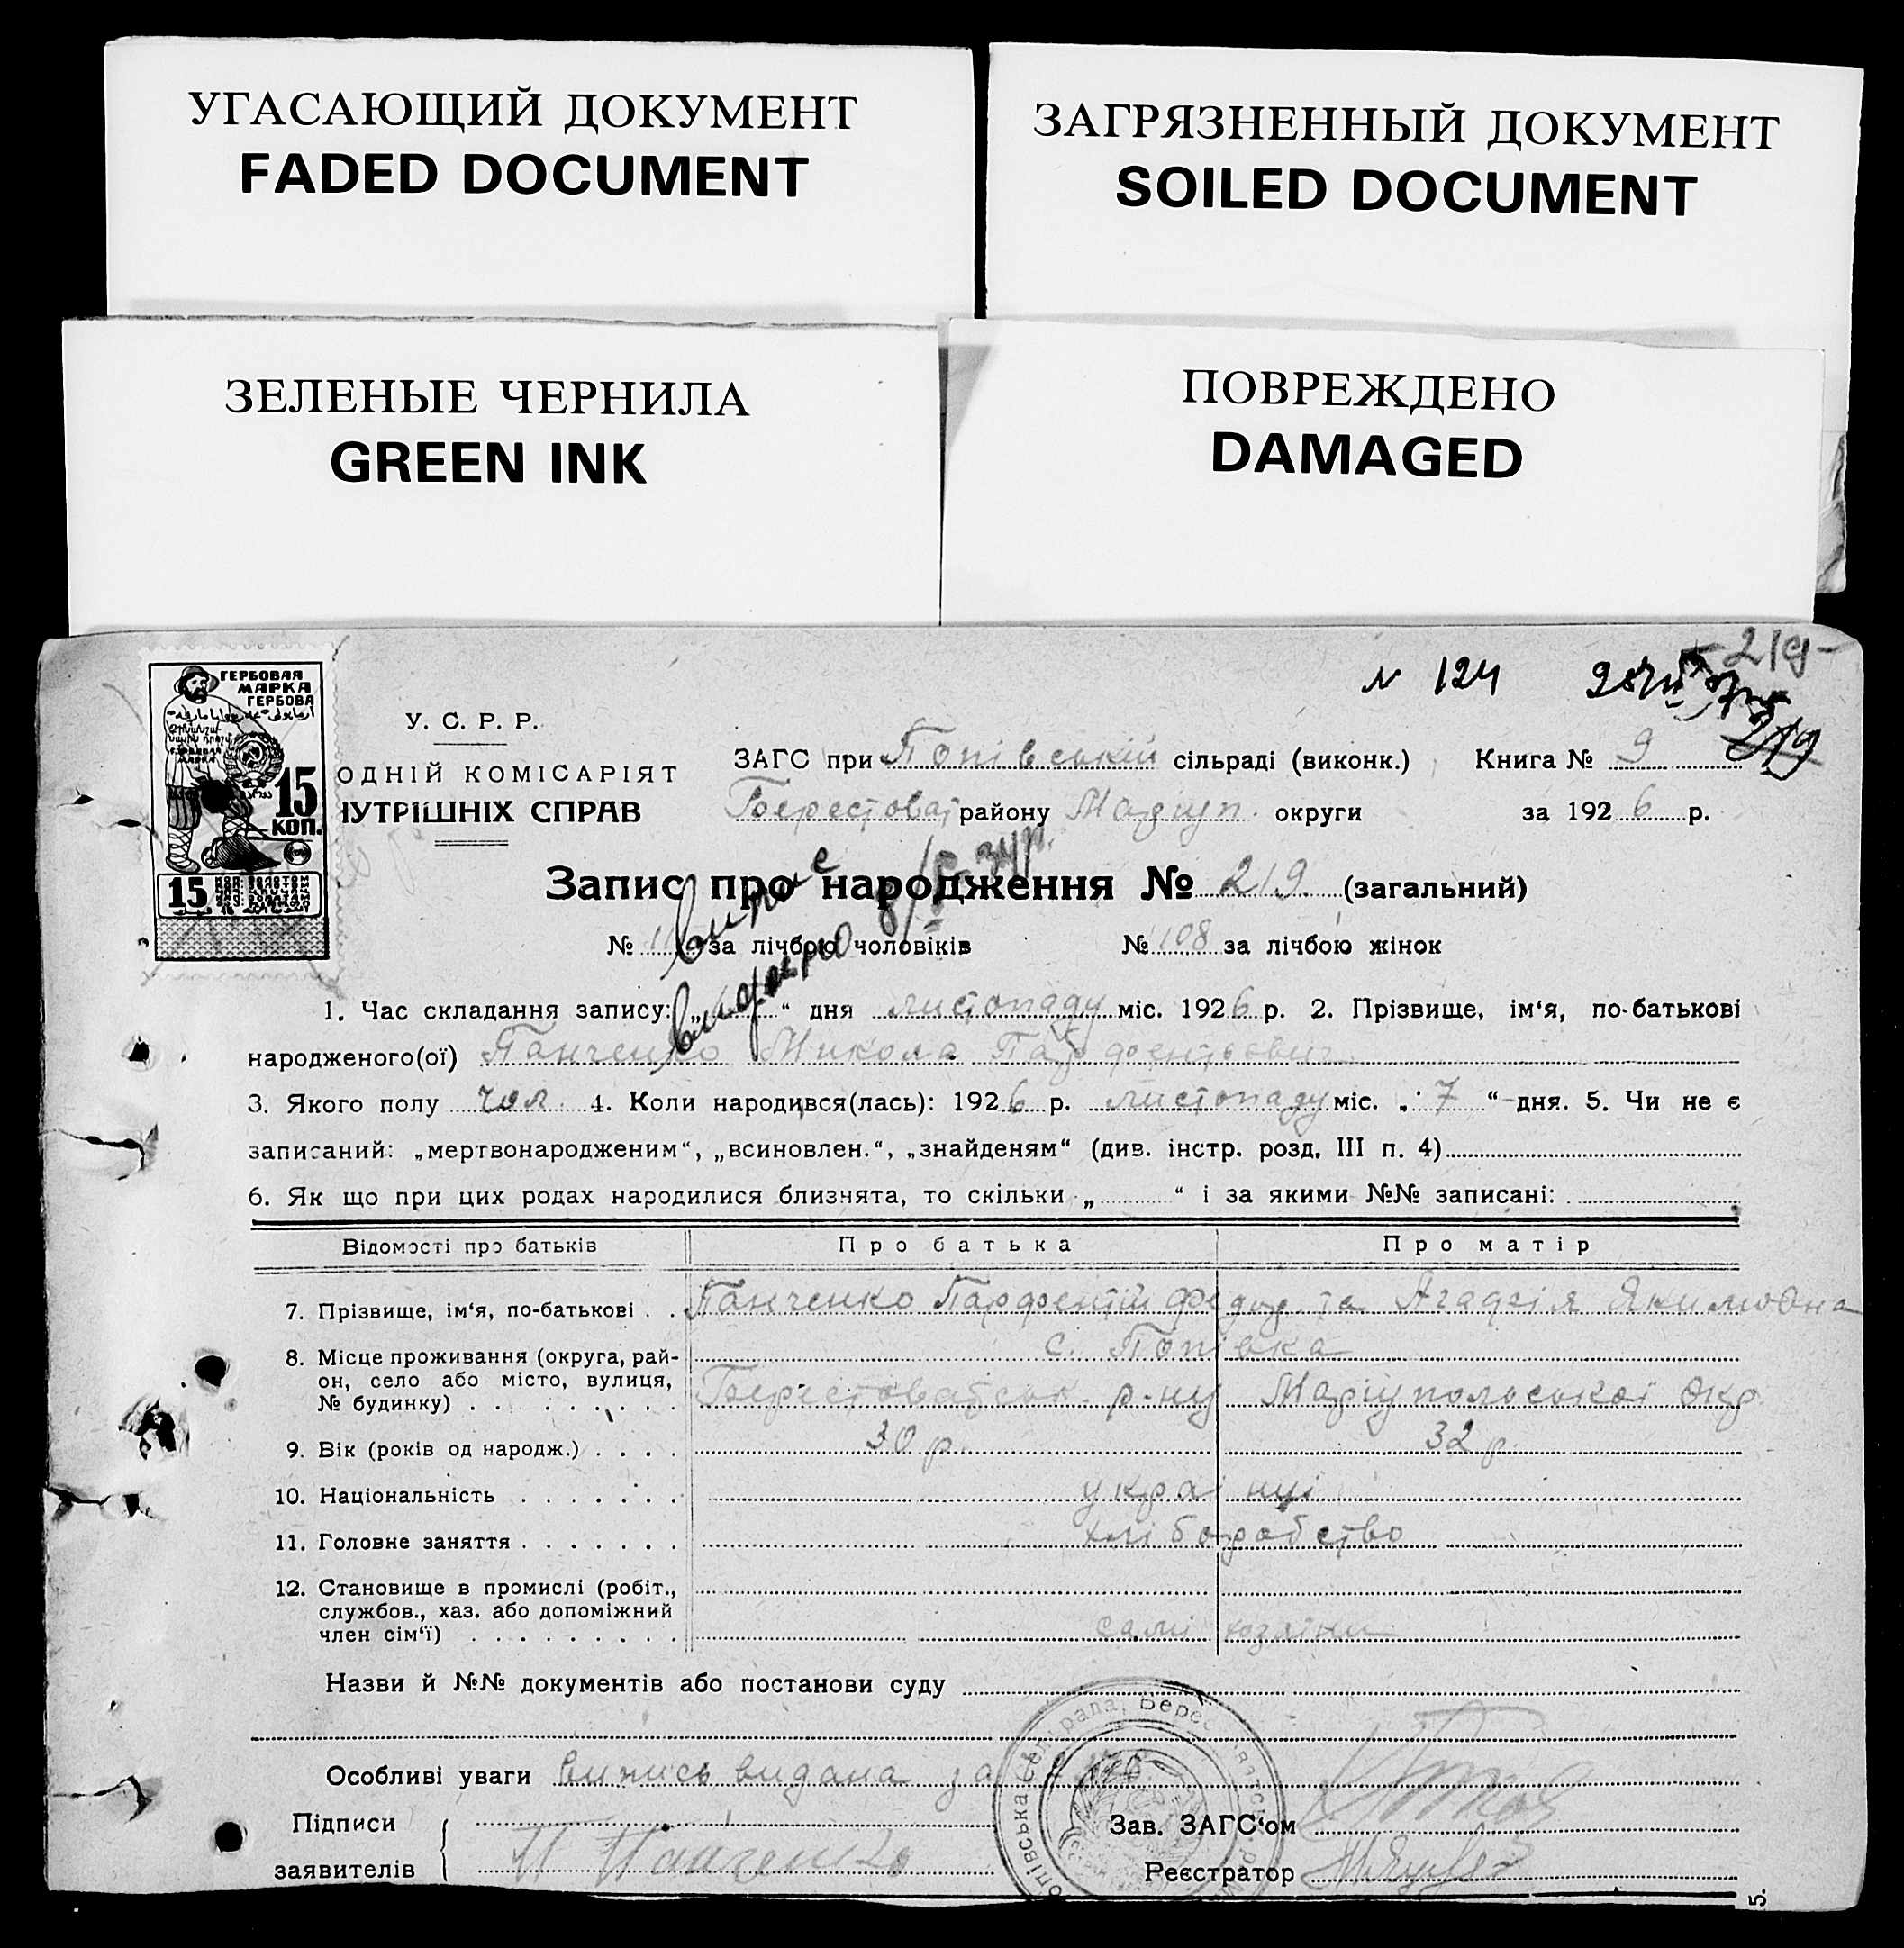 УГАСАЮЩИЙ ДОКУМЕНТ
FADED DOCUMENT
ЗАГРЯЗНЕННЫЙ ДОКУМЕНТ
SOILED DOCUMENT
ЗЕЛЕНЫЕ ЧЕРНИЛА
GREEN INK
ПОВРЕЖДЕНО
DAMAGED
-219-
№ 124
219
ГЕРБОВАЯ
МАРКА
ГЕРБОВА
15
КОП.
15
У. С. Р. Р.
ОДНІЙ КОМІСАРІЯТ
НУТРІШНІХ СПРАВ
ЗАГС при Попівській сільраді (виконк.) Книга № 9
Берестоват району Маріуп. округи за 1926 р.
Запис про народження № 219 (загальний)
№ за лічбою чоловіків № 108 за лічбою жінок
Випис
видано
1. Час складання запису: „ “ дня листопаду міс. 1926 р. 2. Прізвище, ім‘я, по-батькові
народженого(ої) Панченко Микола Парфентьович
3. Якого полу чол. 4. Коли народився(лась): 1926 р. листопаду міс. „7“ дня. 5. Чи не є
записаний: „мертвонародженим“, „всиновлен.“, „знайденям“ (див. інстр. розд. III п. 4)
6. Як що при цих родах народилися близнята, то скільки „ “ і за якими №№ записані:
Відомості про батьків Про батька Про матір
7. Прізвище, ім‘я, по-батькові . . Панченко Парфентій Федор. та Агафія Якимовна
8. Місце проживання (округа, рай- с. Попівка
он, село або місто, вулиця, Берестоватськ. р-ну Маріупольської окр.
№ будинку) . . . . . . . . .
9. Вік (років од народж.) . . . . 30 р. 32 р.
10. Національність . . . . . . . українці
11. Головне заняття . . . . . . . хліборобство
12. Становище в промислі (робіт.,
службов., хаз. або допоміжний
член сім‘ї) . . . . . . . . . самі хозяїни
Назви й №№ документів або постанови суду
Особливі уваги Випись видана за №
Підписи
заявителів П Панченко
Зав. ЗАГС‘ом
Реєстратор
5.